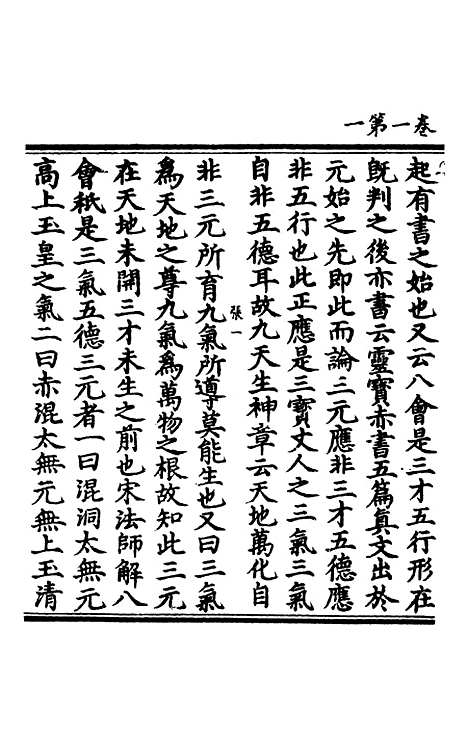 卷一第一
起有書之始也又云八會是三才五行形在
旣判之後亦書云靈寶赤書五篇眞文出於
元始之先即此而論三元應非三才五德應
非五行也此正應是三寶丈人之三氣三氣
自非五德耳故九天生神章云天地萬化自
張一
非三元所育九氣所導莫能生也又曰三氣
爲天地之尊九氣爲萬物之根故知此三元
在天地未開三才未生之前也宋法師解八
會秖是三氣五德三元者一曰混洞太無元
高上玉皇之氣二曰赤混太無元無上玉清